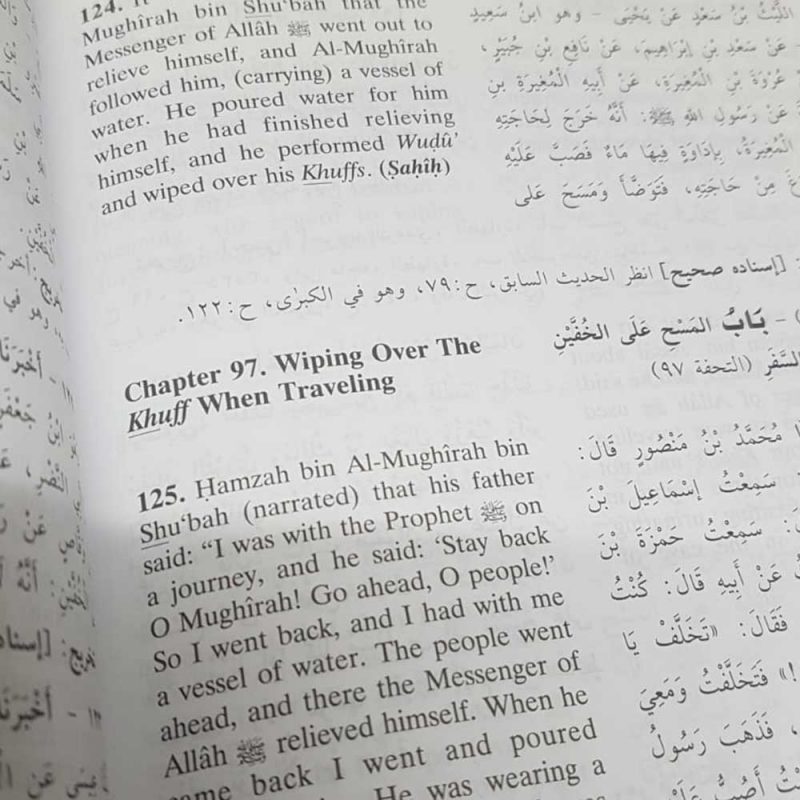 124. It
Mughîrah bin Shu‘bah that the
Messenger of Allâh ﷺ went out to
relieve himself, and Al-Mughîrah
followed him, (carrying) a vessel of
water. He poured water for him
when he had finished relieving
himself, and he performed Wudû’
and wiped over his Khuffs. (Ṣaḥîḥ)
اللَّيْثُ بْنُ سَعْدٍ عَنْ يَحْيَى - وَهُوَ ابْنُ سَعِيدٍ
- عَنْ سَعْدِ بْنِ إِبْرَاهِيمَ، عَنْ نَافِعِ بْنِ جُبَيْرٍ،
عُرْوَةَ بْنِ الْمُغِيرَةِ، عَنْ أَبِيهِ الْمُغِيرَةِ بْنِ
عَنْ رَسُولِ اللهِ ﷺ: أَنَّهُ خَرَجَ لِحَاجَتِهِ
الْمُغِيرَةُ، بِإِدَاوَةٍ فِيهَا مَاءٌ فَصَبَّ عَلَيْهِ
مِنْ حَاجَتِهِ، فَتَوَضَّأَ وَمَسَحَ عَلَى
[إسناده صحيح] انظر الحديث السابق، ح:٧٩، وهو في الكبرٰى، ح:١٢٢.
Chapter 97. Wiping Over The
Khuff When Traveling
- بَابُ الْمَسْحِ عَلَى الْخُفَّيْنِ
السَّفَرِ (التحفة ٩٧)
125. Ḥamzah bin Al-Mughîrah bin
Shu‘bah (narrated) that his father
said: “I was with the Prophet ﷺ on
a journey, and he said: ‘Stay back
O Mughîrah! Go ahead, O people!’
So I went back, and I had with me
a vessel of water. The people went
ahead, and there the Messenger of
Allâh ﷺ relieved himself. When he
came back I went and poured
He was wearing a
مُحَمَّدُ بْنُ مَنْصُورٍ قَالَ:
سَمِعْتُ إِسْمَاعِيلَ بْنَ
سَمِعْتُ حَمْزَةَ بْنَ
عَنْ أَبِيهِ قَالَ: كُنْتُ
فَقَالَ: «تَخَلَّفْ يَا
!» فَتَخَلَّفْتُ وَمَعِيَ
، فَذَهَبَ رَسُولُ
أَصُبُّ عَلَيْهِ